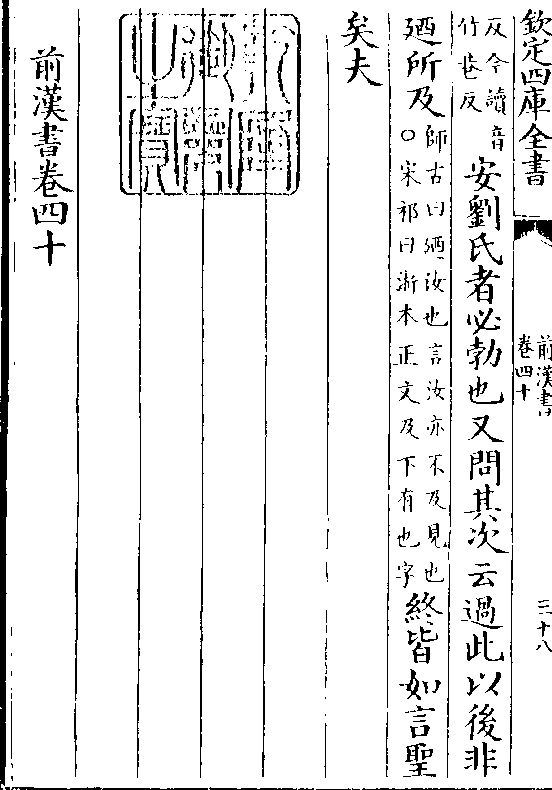 欽定四庫全書
前漢書
卷四十
三十八
反今讀音
竹巷反
安劉氏者必勃也又問其次云過此以後非
廼所及
師古曰廼汝也言汝亦不及見也
○宋祁曰浙本正文及下有也字
終皆如言聖
矣夫
乾隆
御覽
之寶
前漢書卷四十